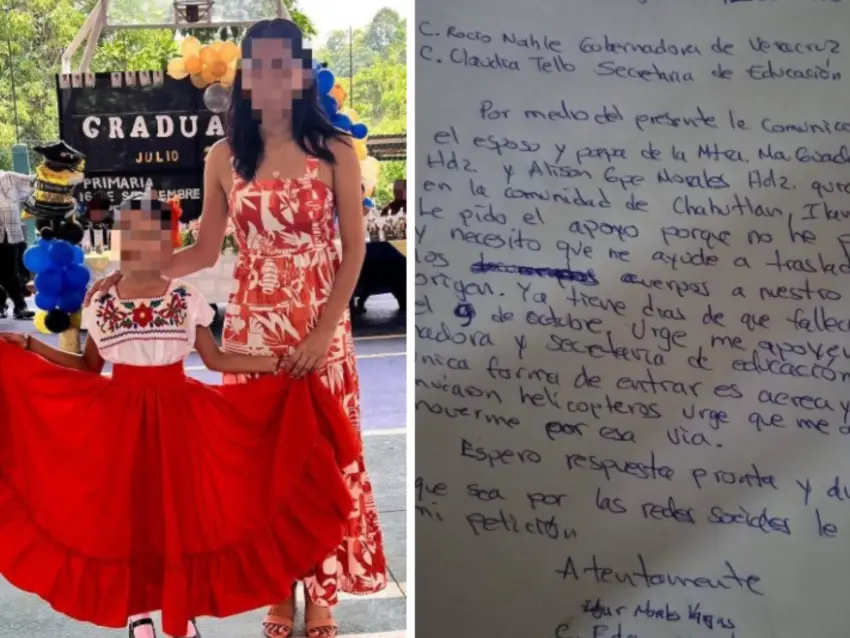 GRADUA
JULIO 2
PRIMARIA
16 DE SEPTIEMBRE
C. Rocio Nahle Gobernadora de Veracruz
C. Claudia Tello Secretaria de Educación
Por medio del presente le comunic
el esposo y papa de la Mtra. Ma Guada
Hdz y Alison Gpe Morales Hdz.
en la comunidad de Chahutlan, Ilam
le pido el apoyo porque no he p
y necesito que me ayude a traslad
los cuerpos a nuestro
origen. Ya tiene dias de que fallec
el 9 de octubre, Urge me apoyen
nadora y secretaria de educación
unica forma de entrar es aerea y
nviaron helicopteros urge que me a
moverme por esa via.
Espero respuesta pronta y du
que sea por las redes sociales le
mi petición
Atentamente
Morales Vargas